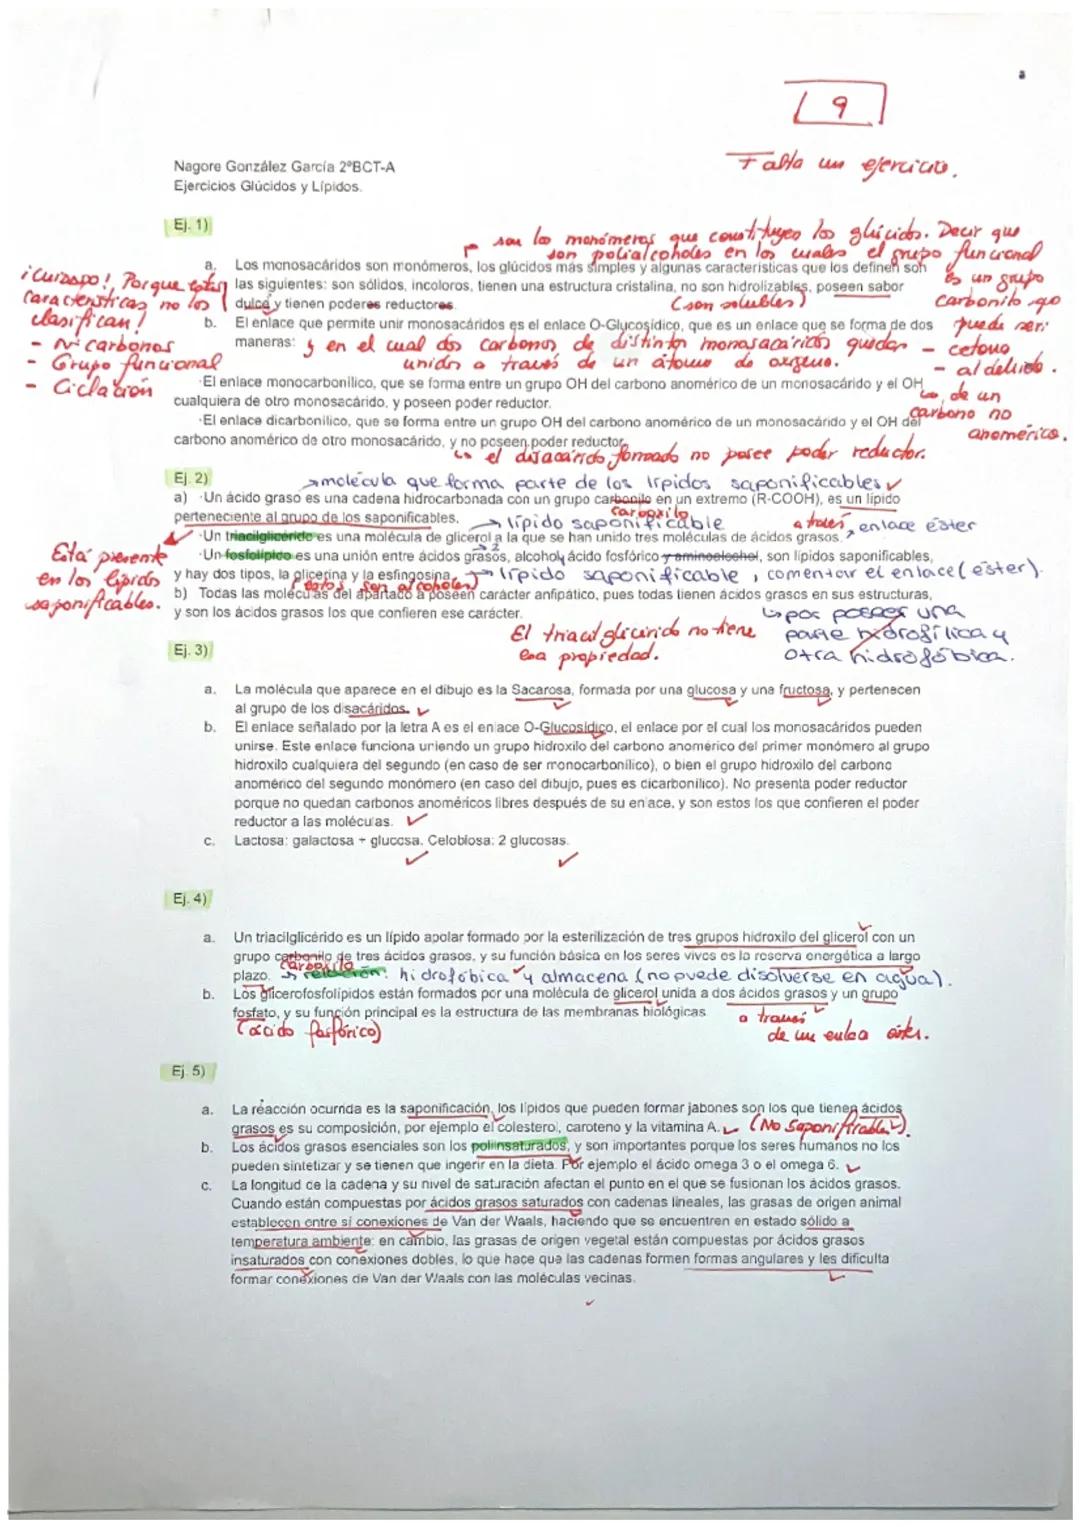 9
Falta un ejercicio.
Nagore González García 2ºBCT-A
Ejercicios Glúcidos y Lípidos.
Ej. 1)
son los monómeros que constituyen los glúcidos. Decir que
son polialcoholes en los cuales el grupo funcional
es un grupo
carbonilo que
puede ser:
- cetona
- aldehido.
a. Los monosacáridos son monómeros, los glúcidos más simples y algunas características que los definen son
las siguientes: son sólidos, incoloros, tienen una estructura cristalina, no son hidrolizables, poseen sabor
dulce y tienen poderes reductores.
(son solubles)
¡Cuidado! Porque estas
características no los
clasifican!
- Nº carbonos
- Grupo funcional
- Ciclación
b. El enlace que permite unir monosacáridos es el enlace O-Glucosídico, que es un enlace que se forma de dos
maneras:
y en el cual dos carbonos de distintos monosacáridos quedan
unidos a través de un átomo de oxígeno.
·El enlace monocarbonílico, que se forma entre un grupo OH del carbono anomérico de un monosacárido y el OH
cualquiera de otro monosacárido, y poseen poder reductor.
de un
carbono no
anomérico.
·El enlace dicarbonílico, que se forma entre un grupo OH del carbono anomérico de un monosacárido y el OH del
carbono anomérico de otro monosacárido, y no poseen poder reductor.
el disacárido formado no posee poder reductor.
Ej. 2)
molécula que forma parte de los lípidos saponificables
a) ·Un ácido graso es una cadena hidrocarbonada con un grupo carbonilo en un extremo (R-COOH), es un lípido
carboxilo
perteneciente al grupo de los saponificables.
lípido saponificable
a través enlace éster
·Un triacilglicérido es una molécula de glicerol a la que se han unido tres moléculas de ácidos grasos.
2
·Un fosfolípido es una unión entre ácidos grasos, alcohol, ácido fosfórico y aminoalcohol, son lípidos saponificables,
y hay dos tipos, la glicerina y la esfingosina.
lípido saponificable, comentar el enlace (éster).
(estos son alcoholes)
Está presente
en los lípidos
saponificables.
b) Todas las moléculas del apartado a poseen carácter anfipático, pues todas tienen ácidos grasos en sus estructuras,
y son los ácidos grasos los que confieren ese carácter.
por poseer una
parte hidrofílica y
otra hidrofóbica.
El triacilglicérido no tiene
esa propiedad.
Ej. 3)
a. La molécula que aparece en el dibujo es la Sacarosa, formada por una glucosa y una fructosa, y pertenecen
al grupo de los disacáridos.
b. El enlace señalado por la letra A es el enlace O-Glucosídico, el enlace por el cual los monosacáridos pueden
unirse. Este enlace funciona uniendo un grupo hidroxilo del carbono anomérico del primer monómero al grupo
hidroxilo cualquiera del segundo (en caso de ser monocarbonílico), o bien el grupo hidroxilo del carbono
anomérico del segundo monómero (en caso del dibujo, pues es dicarbonílico). No presenta poder reductor
porque no quedan carbonos anoméricos libres después de su enlace, y son estos los que confieren el poder
reductor a las moléculas.
c. Lactosa: galactosa + glucosa. Celobiosa: 2 glucosas.
Ej. 4)
a. Un triacilglicérido es un lípido apolar formado por la esterilización de tres grupos hidroxilo del glicerol con un
grupo carbonilo de tres ácidos grasos, y su función básica en los seres vivos es la reserva energética a largo
carboxilo
plazo.
relación: hidrofóbica y almacena (no puede disolverse en agua).
b. Los glicerofosfolípidos están formados por una molécula de glicerol unida a dos ácidos grasos y un grupo
fosfato, y su función principal es la estructura de las membranas biológicas
(ácido fosfórico)
a través
de un enlace éster.
Ej. 5)
a. La reacción ocurrida es la saponificación, los lípidos que pueden formar jabones son los que tienen ácidos
grasos es su composición, por ejemplo el colesterol, caroteno y la vitamina A.
(No Saponificables).
b. Los ácidos grasos esenciales son los poliinsaturados, y son importantes porque los seres humanos no los
pueden sintetizar y se tienen que ingerir en la dieta. Por ejemplo el ácido omega 3 o el omega 6.
c. La longitud de la cadena y su nivel de saturación afectan el punto en el que se fusionan los ácidos grasos.
Cuando están compuestas por ácidos grasos saturados con cadenas lineales, las grasas de origen animal
establecen entre sí conexiones de Van der Waals, haciendo que se encuentren en estado sólido a
temperatura ambiente; en cambio, las grasas de origen vegetal están compuestas por ácidos grasos
insaturados con conexiones dobles, lo que hace que las cadenas formen formas angulares y les dificulta
formar conexiones de Van der Waals con las moléculas vecinas.